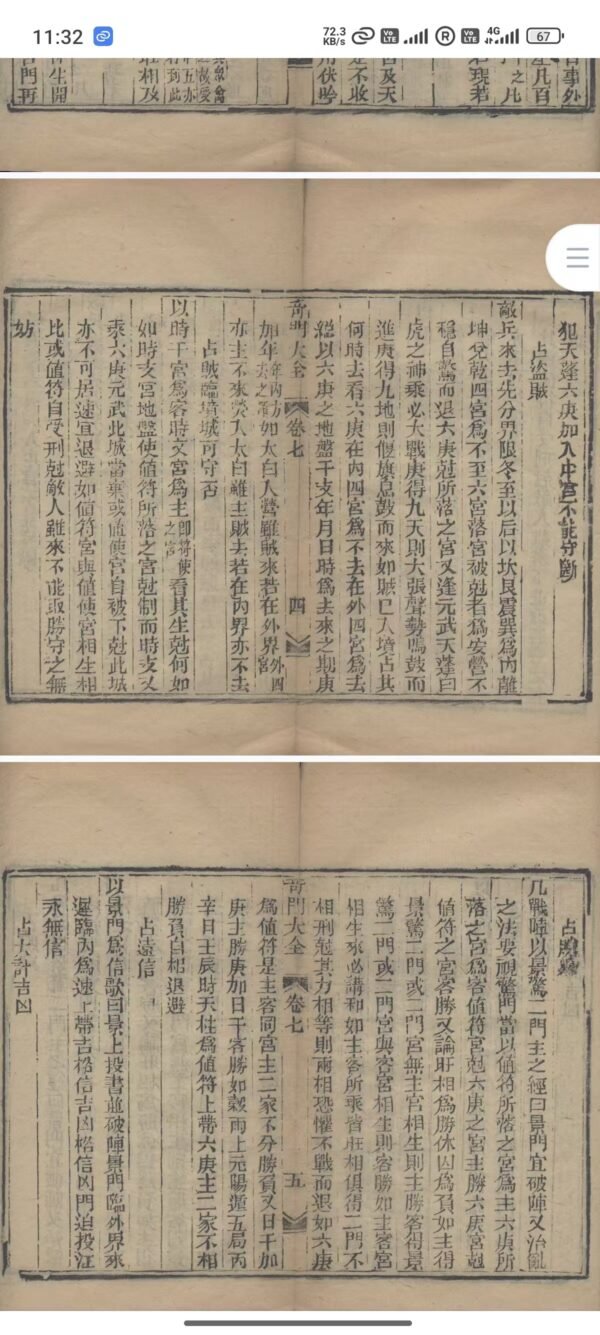 11:32
72.3
KB/s
Vo
LTE
R
Vo
LTE
4G
67
犯天蓬六庚加入中宮不能守斷
占盜賊
敵兵來去先分界限冬至以后以坎艮震巽爲內離
坤兌乾四宮爲不至六宮落宮被尅者爲安營不
穩自驚而退六庚尅所落之宮又逢元武天蓬曰
虎之神乘必大戰庚得九天則大張聲勢鳴鼓而
進庚得九地則偃旗息鼓而來如賊已入境占其
何時去看六庚在內四宮爲不去在外四宮爲去
總以六庚之地盤干支年月日時爲去來之期庚
奇門大全
卷七
四
加年如太白人營雖賊來若在外界宮外四
亦主不來熒入太白雖主賊去若在內界亦不去
占賊臨境城可守否
以時干宮爲客時支宮爲主即符使之宮看其生尅何如
如時支宮地盤使値符所落之宮尅制而時支又
乘六庚元武此城當棄或値使宮自被下尅此城
亦不可居速宜退避如値符宮與値使宮相生相
比或値符自受刑尅敵人雖來不能取勝守之無
妨
凡戰陣以景驚二門主之經曰景門宜破陣又治亂
之法要視驚門當以値符所落之宮爲主六庚所
落之宮爲客値符宮尅六庚之宮主勝六庚宮尅
値符之宮客勝又論旺相爲勝休囚爲負如主得
景驚二門或二門宮無主宮相生則主勝客得景
驚二門或二門宮與客宮相生則客勝如主客宮
相生來必講和如主客所乘皆旺相俱得二門不
相刑尅其方相等則兩相恐懼不戰而退如六庚
奇門大全
卷七
五
爲値符是主客同宮主二家不分勝負又日干加
庚主勝庚加日干客勝如穀雨上元陽遁五局丙
辛日壬辰時天柱爲値符上帶六庚主二家不相
勝負自相退避
占遠信
以景門爲信歌曰景上投書並破陣景門臨外界來
遲臨內爲速上帶吉格信吉凶格信凶門迫投江
永無信
占大計吉凶